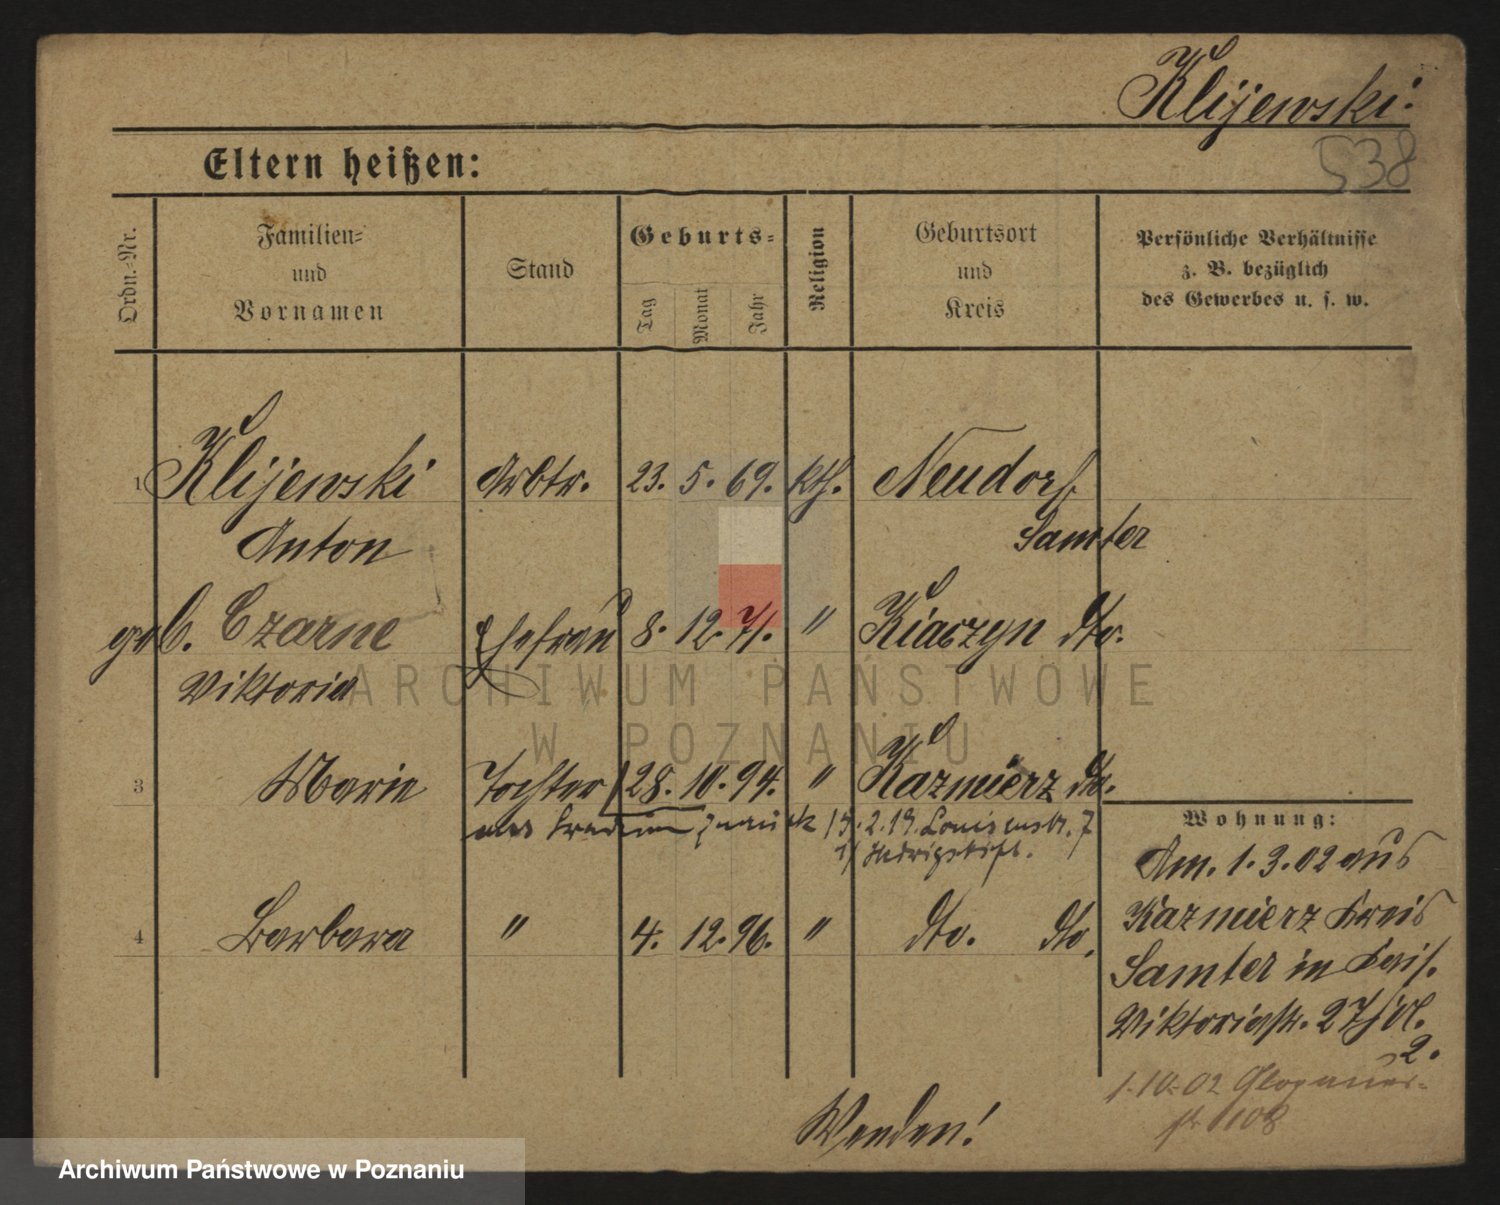 Klijewski.
538
Eltern heißen:
Ordn.-Nr.
Familien- und Vornamen
Stand
Geburts-
Tag
Monat
Jahr
Religion
Geburtsort und Kreis
Persönliche Verhältnisse z. B. bezüglich des Gewerbes u. s. w.
1 Klijewski Arbtr. 23. 5. 69. kth. Neudorf
Anton Samter
geb. Czarne Ehefrau 8. 12. 71. " Kiaczyn dto.
Viktoria
3 Marie Tochter 28. 10. 94. " Kazmierz do.
aus zurück 15. 2. 19. Louisenstr. 7
Hedwigstift.
4 Barbara " 4. 12. 96. " dto. dto.
Wohnung:
Am. 1. 3. 02 aus
Kazmierz Kreis
Samter in
Viktoriastr. 27
2.
1.10.02 Glogauer-
str 108
Wenden!
ARCHIWUM PAŃSTWOWE
W POZNANIU
Archiwum Państwowe w Poznaniu